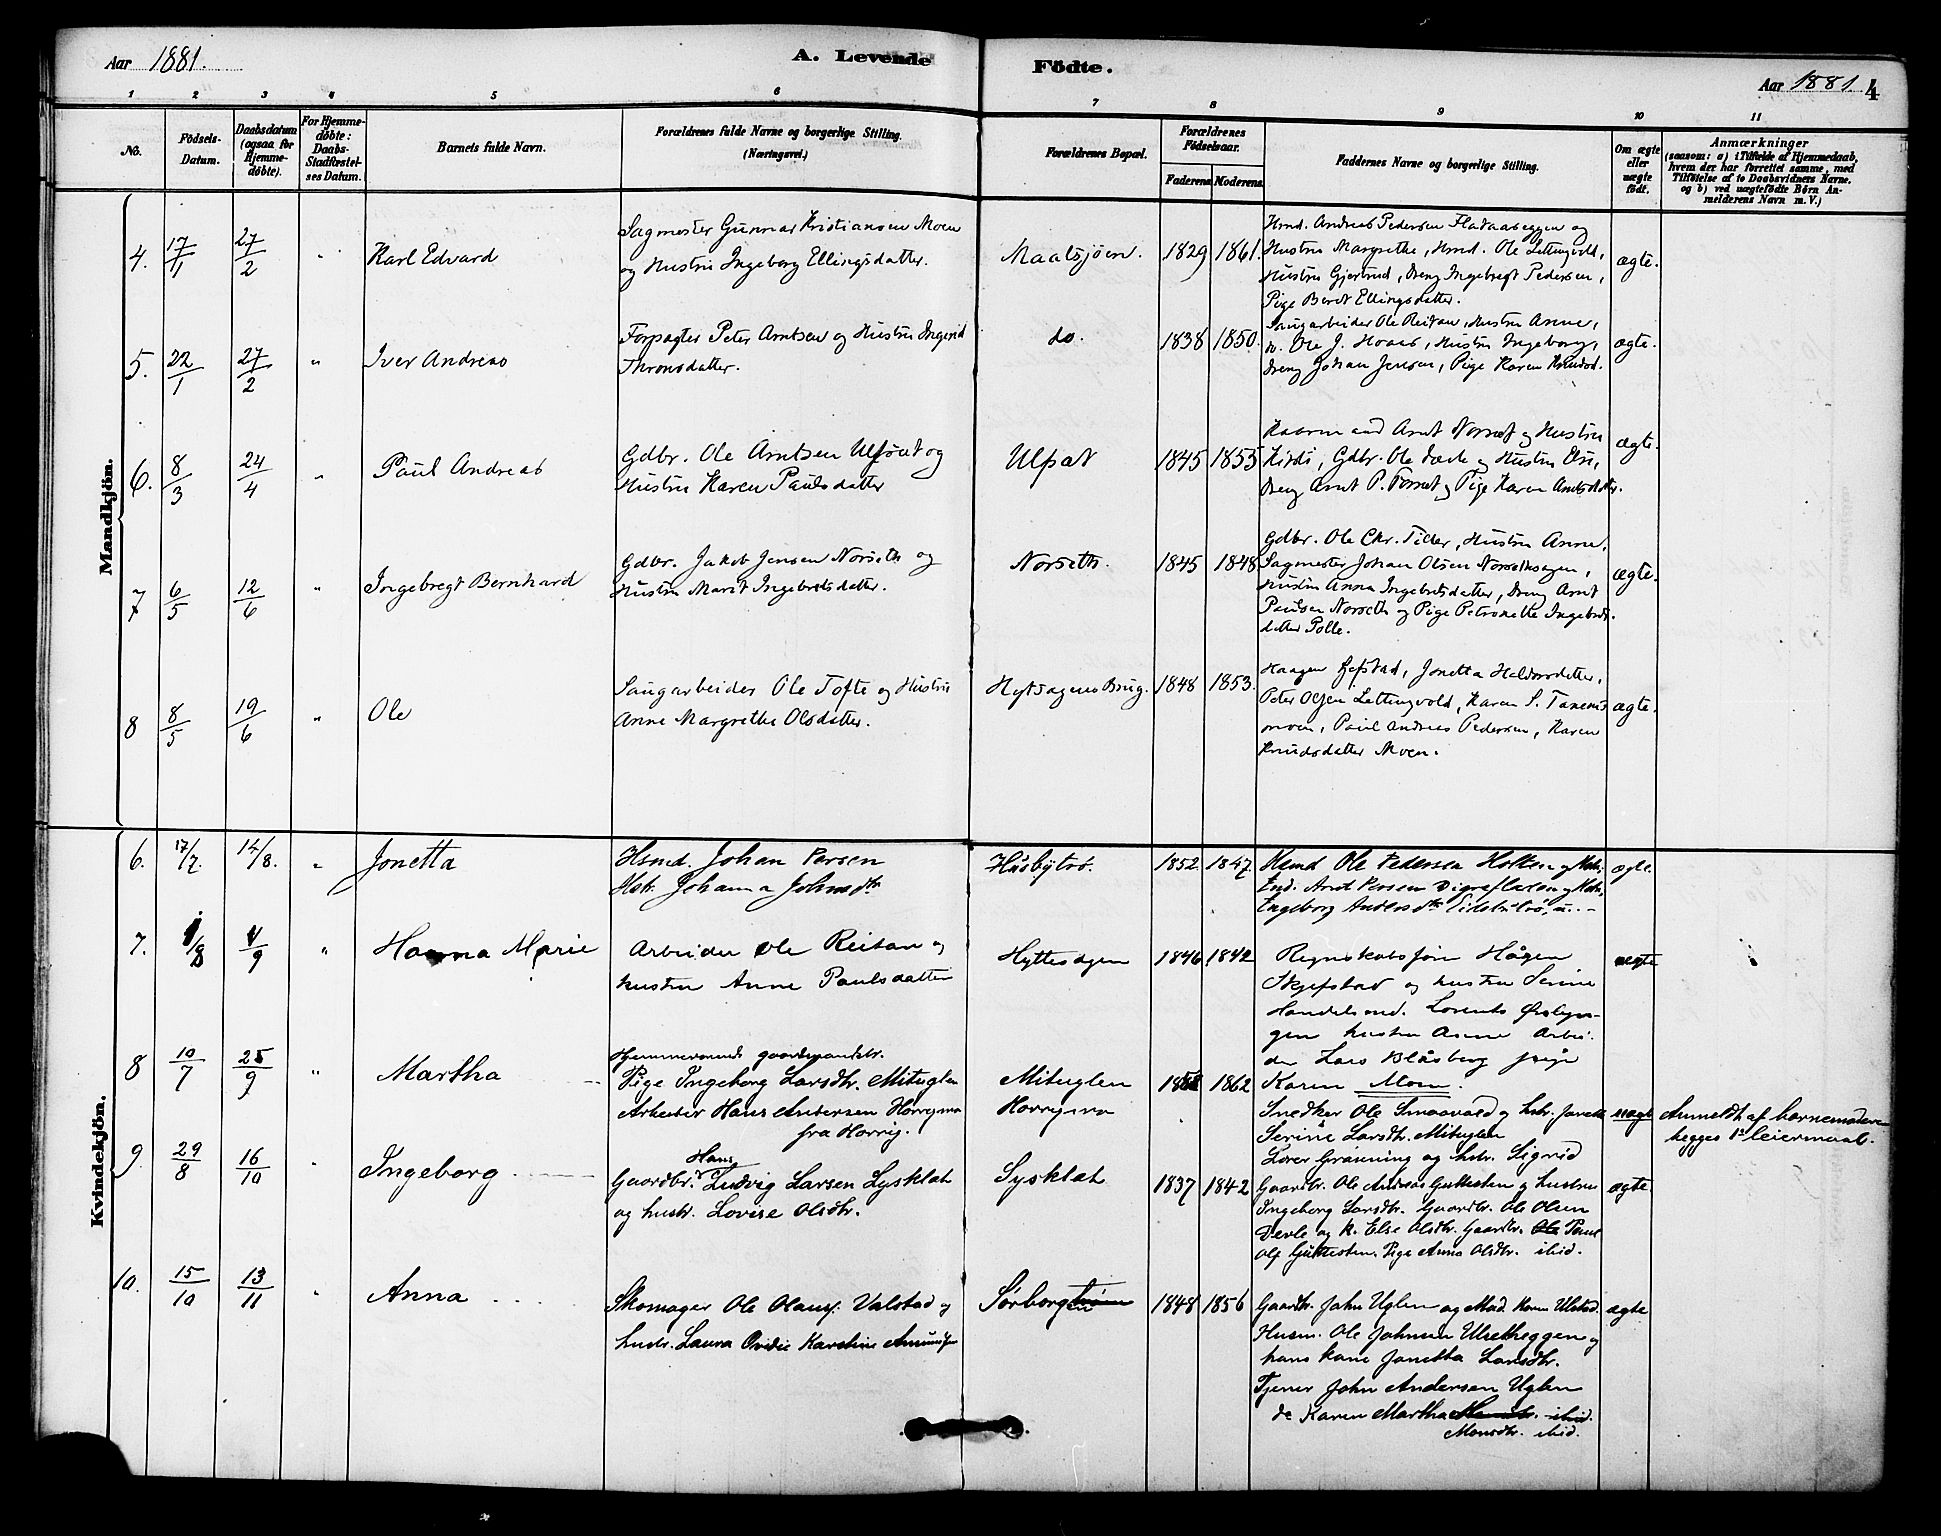 Aar 1881.
A. Levende Födte.
Aar 1881. 4
1 2 3 4 5 6 7 8 9 10 11
No.
Födsels-Datum.
Daabsdatum (ogsaa for Hjemme-døbte).
For Hjemme-døbte: Daabs-Stadfæstel-ses Datum.
Barnets fulde Navn.
Forældrenes fulde Navne og borgerlige Stilling. (Næringsvei.)
Forældrenes Bopæl.
Forældrenes Födselsaar.
Faderens Moderens
Faddernes Navne og borgerlige Stilling.
Om ægte eller uægte født.
Anmærkninger
(saasom: a) i Tilfælde af Hjemmedaab,
hvem der har forrettet samme, med
Tilföielse af to Daabsvidners Navne.
og b) ved uægtefödte Börn An-
melderens Navn m. V.)
Mandkjön.
4. 17/1 27/2 " Karl Edvard
Sagmester Gunnar Kristiansen Moen
og Hustru Ingeborg Ellingsdatter.
Maalsjöen. 1829 1861.
Hmd. Andreas Pedersen Flataaseggen og
Hustru Margrethe, Hmd. Ole Lettingvold,
Hustru Gjertrud, Dreng Ingebregt Pedersen,
Pige Berit Ellingsdatter.
ægte.
5. 22/1 27/2 " Iver Andreas
Forpagter Peter Arntsen og Hustru Ingerid
Thronsdatter.
do. 1838 1850.
Saugarbeider Ole Reitan, Hustru Anne,
do. Ole J. Hoaas, Hustru Ingeborg,
Dreng Johan Jensen, Pige Karen Knudsd.
ægte.
6. 8/3 24/4 " Paul Andreas
Gdbr. Ole Arntsen Ulsæt og
Hustru Karen Paulsdatter
Ulsæt 1845 1853
Arnt Norset og Hustru
Gdbr. Ole og Hustru
Dreng Arnt P. og Pige Karen Arntsdatter.
ægte.
7 6/5 12/6 " Ingebregt Bernhard
Gdbr. Jakob Jensen Norseth og
Hustru Marit Ingebretsdatter.
Norseth. 1845 1848
Gdbr. Ole Chr. Tiller, Hustru Anne,
Sagmester Johan Olsen Norsethsagen,
Hustru Anna Ingebretsdatter, Dreng Arnt
Paulsen Norseth og Pige Petronelle Ingebrets
datter Polle.
ægte.
8 8/5 19/6 " Ole
Saugarbeider Ole Tofte og Hustru
Anne Margrethe Olsdatter.
Hytsagens Brug. 1848 1853.
Haagen Gjefstad, Jonetta Haldorsdatter,
Peter Olsen Lettingvold, Karen S. Tanems
moen, Paul Andreas Pedersen, Karen
Knudsdatter Moen.
ægte.
Kvindekjön.
6. 17/7. 14/8. " Jonetta
Hsmd. Johan Persen
Hstr. Johanna Johnsdtr
Husbytrø. 1852 1847.
Hsmd Ole Pedersen og Hstr,
Arnt Persen og Hstr,
Ingeborg Andersdtr
ægte.
7. 1/8 4/9 " Hanna Marie
Arbeider Ole Reitan og
hustru Anne Paulsdatter
Hyttesagen 1846 1842
Regnskabsfører Hågen
Skjefstad og hustru Serine
Handelsmd. Lorents Øsbyha-
gen hustru Anne Arbei-
der Lars Blåsberg pige
Karen Moen.
ægte
8 10/7 25/9 " Martha
Hjemmeværende gaardmandsdtr.
Pige Ingeborg Larsdtr. Mituglen
Arbeider Hans Andersen Horrigmo
fra Horrig.
Mituglen
Horrigmo
1858 1862
Snedker Ole Smaavold og hstr. Jonette
Serine Larsdtr. Mituglen
Lorer Grønning og hstr. Sigrid
uægte
Anmeldt af barnemoderen
begges 1ste leiermaal.
9. 29/8 16/10 " Ingeborg
Gaardbr. Hans Ludvig Larsen Lysklæt
og hustr. Lovise Olsdtr.
Lysklæt 1837 1842
Gaardbr. Ole Andreas Guttesten og hustru
Ingeborg Larsdtr. Gaardbr. Ole Olsen
Devle og k. Else Olsdtr. Gaardbr. Ole Paul
Ols. Guttesten. Pige Anna Olsdtr. ibid.
ægte
10. 15/10 13/11 " Anna
Skomager Ole Olaus. Valstad og
hustr. Laura Ovidie Karoline Amundsen
Sørborgen 1848 1856
Gaardbr. John Uglen og Mad. Karen Ulstad.
Husm. Ole Johnsen Ulsetheggen og
hans kone Jonetta Larsdtr.
Tjener John Andersen Uglen
do Karen Martha ibid.
Monsdtr. ibid.
ægte